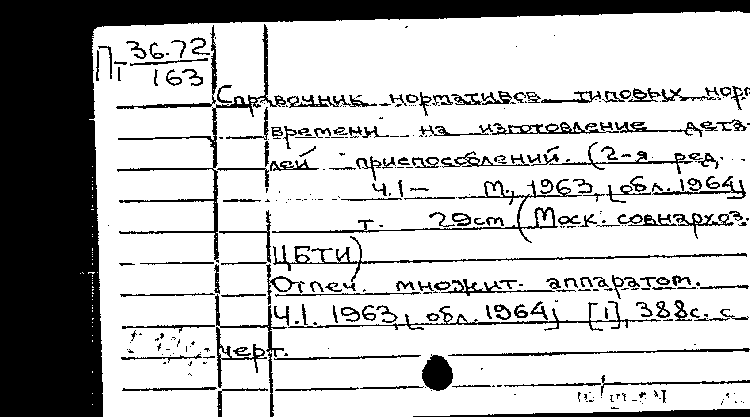 Пт 36.72
163
Справочник нормативов типовых норм
времени на изготовление дета-
лей приспособлений. (2-я ред.
Ч.1 — М., 1963, [обл. 1964]
т. 29см. (Моск. совнархоз.
ЦБТИ)
Отпеч. множит. аппаратом.
Ч.1. 1963, [обл. 1964] [1], 388с. с
черт.